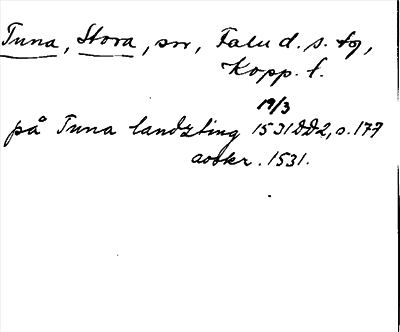 Tuna, Stora, sn, Falu d. s. fg,
Kopp. l.
19/3
på Tuna landzting 1531 DD2, s. 177
avskr. 1531.